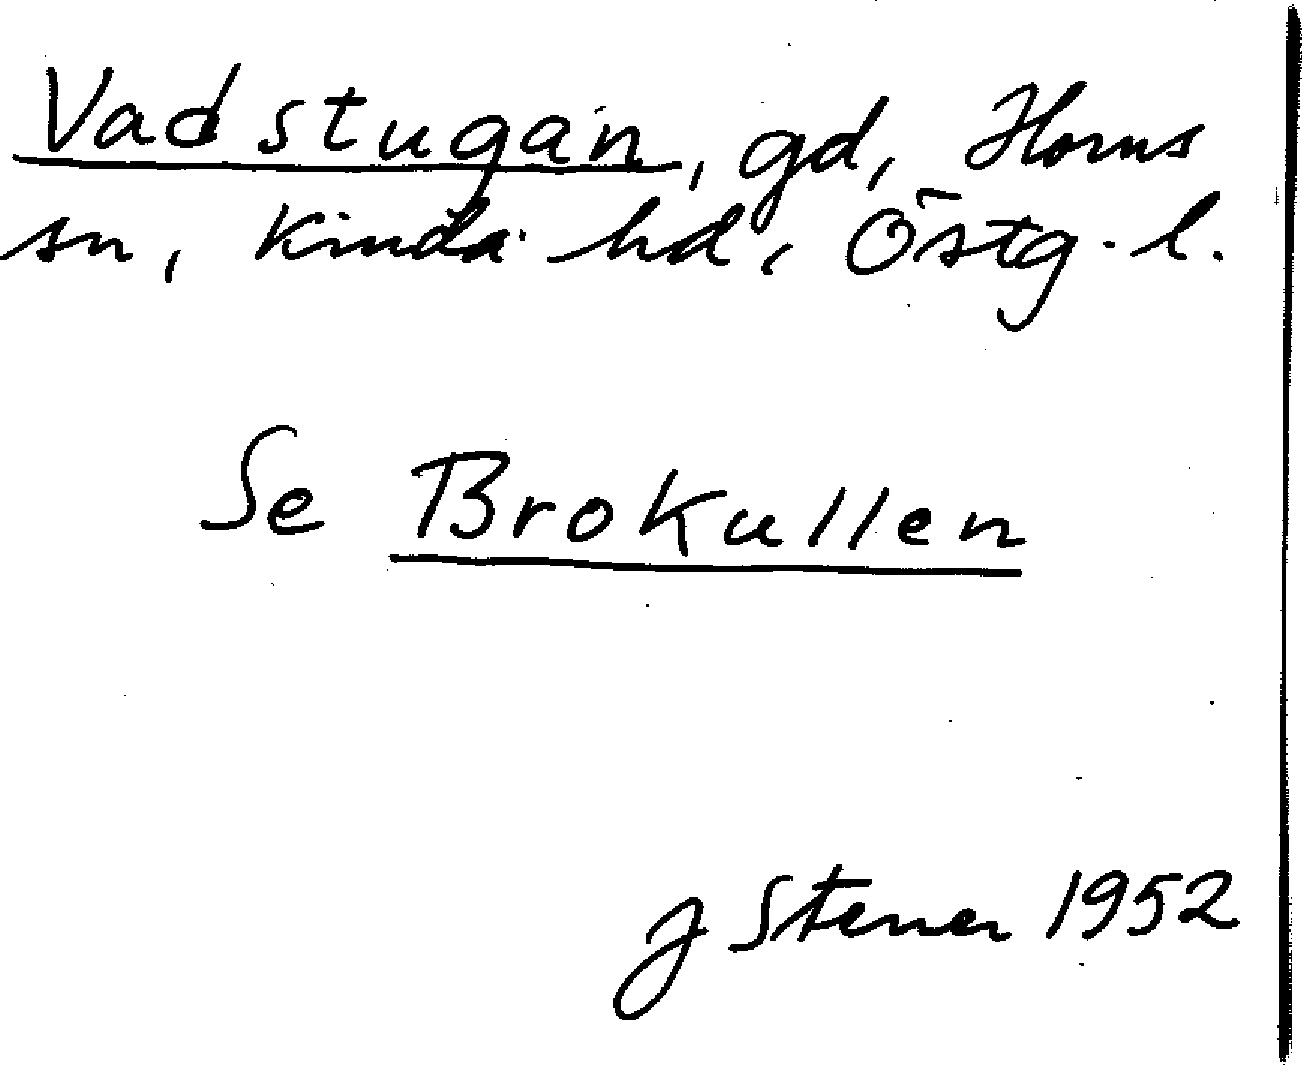 Vadstugan, gd, Horns
sn, Kinda hd, Östg. l.
Se Brokullen
J Stener 1952